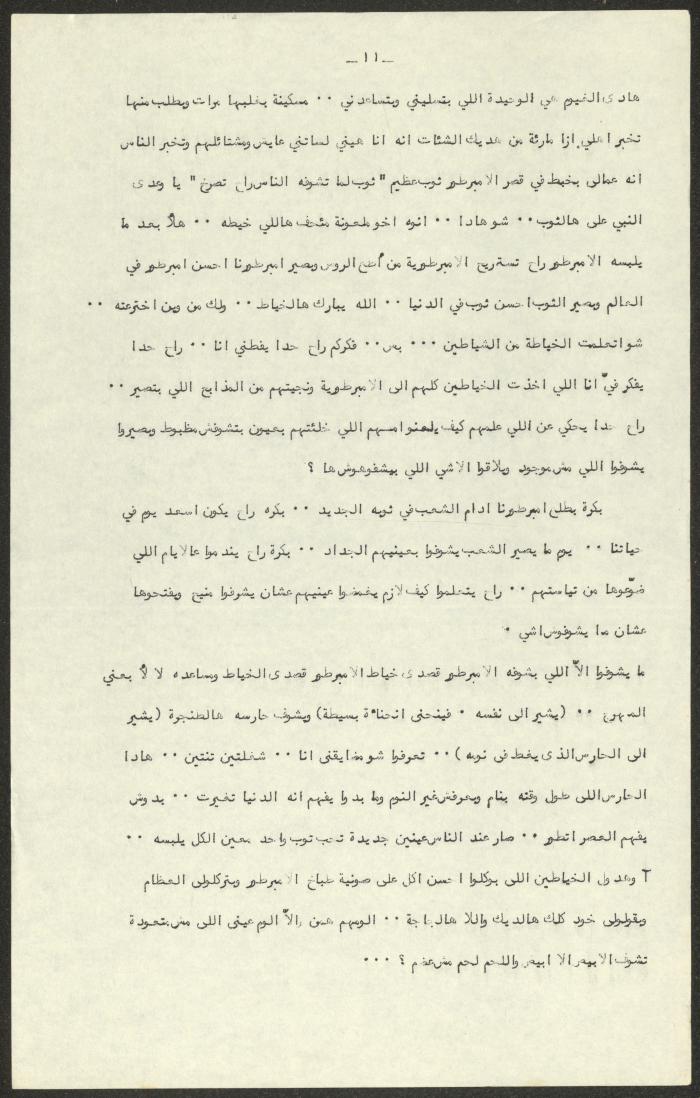 _ ١١ _
هادى الغيوم هي الوحيدة اللي بتسليني وبتساعدني ٠٠ مسكينة بغلبها مرات وبطلب منها
تخبر اهلي ازا مارئة من هديك الشئات انه انا هيني لساتني عايش ومشتائلهم وتخبر الناس
انه عمالى بخيط في قصر الامبرطور ثوب عظيم " ثوب لما تشوفه الناس راح تصرخ " يا وعدى
النبي على هالثوب ٠٠ شو هادا ٠٠ انوه اخو ملعونة مئحف هاللي خيطه ٠٠ هلأ بعد ما
يلبسه الامبرطور راح تستريح الامبرطورية من أطع الروس وبصير امبرطورنا احسن امبرطور في
العالم وبصير الثوب احسن ثوب في الدنيا ٠٠ الله يبارك هالخياط ٠٠ ولك من وين اخترعته ٠٠
شو اتعلمت الخياطة من الشياطين ٠٠٠ بس ٠٠ فكركم راح حدا يفطني انا ٠٠ راح حدا
يفكر فيّ انا اللي اخذت الخياطين كلهم الى الامبرطورية ونجيتهم من المذابح اللي بتصير ٠٠
راح حدا يحكي عن اللي علمهم كيف يلعنوا امسهم اللي خلئتهم بعيون بتشوفش مظبوط وبصيروا
يشوفوا اللي مش موجود ويلاقوا الاشي اللي بيشفوهوش ها ؟
بكرة بطلع امبرطورنا ادام الشعب في ثوبه الجديد ٠٠ بكره راح يكون اسعد يوم في
حياتنا ٠٠ يوم ما يصير الشعب يشوفوا بعينيهم الجداد ٠٠ بكرة راح يندموا عالايام اللي
ضوّعوها من تياستهم ٠٠ راح يتعلموا كيف لازم يغمضوا عينيهم عشان يشوفوا منيح ويفتحوها
عشان ما يشوفوش اشي ٠
ما يشوفوا الاّ اللي بشوفه الامبرطور قصدى خياط الامبرطور قصدى الخياط ومساعده لا لأ بعني
المهرج ٠٠ (يشير الى نفسه ٠ فينحنى انحناءة بسيطة) وبشوف حارسه هالطنجرة (يشير
الى الحارس الذى يغط في نومه ) ٠٠ تعرفوا شو مضايقنى انا ٠٠ شغلتين تنتين ٠٠ هادا
الحارس اللى طول وقته بنام وبعرفش غير النوم وما بدوا يفهم انه الدنيا تغيرت ٠٠ بدوش
يفهم العصر اتطور ٠٠ صار عند الناس عينين جديدة تحب ثوب واحد معين الكل يلبسه ٠٠
٢ وهدول الخياطين اللى بوكلوا احسن اكل على صونية طباخ الامبرطور وبتركولى العظام
وبقولولى خود كلك هالديك واللا هالجاجة ٠٠ المهم عينى اللى مش متعودة
تشوف الابيض الا ابيض واللحم لحم مش عضم ؟ ٠٠٠